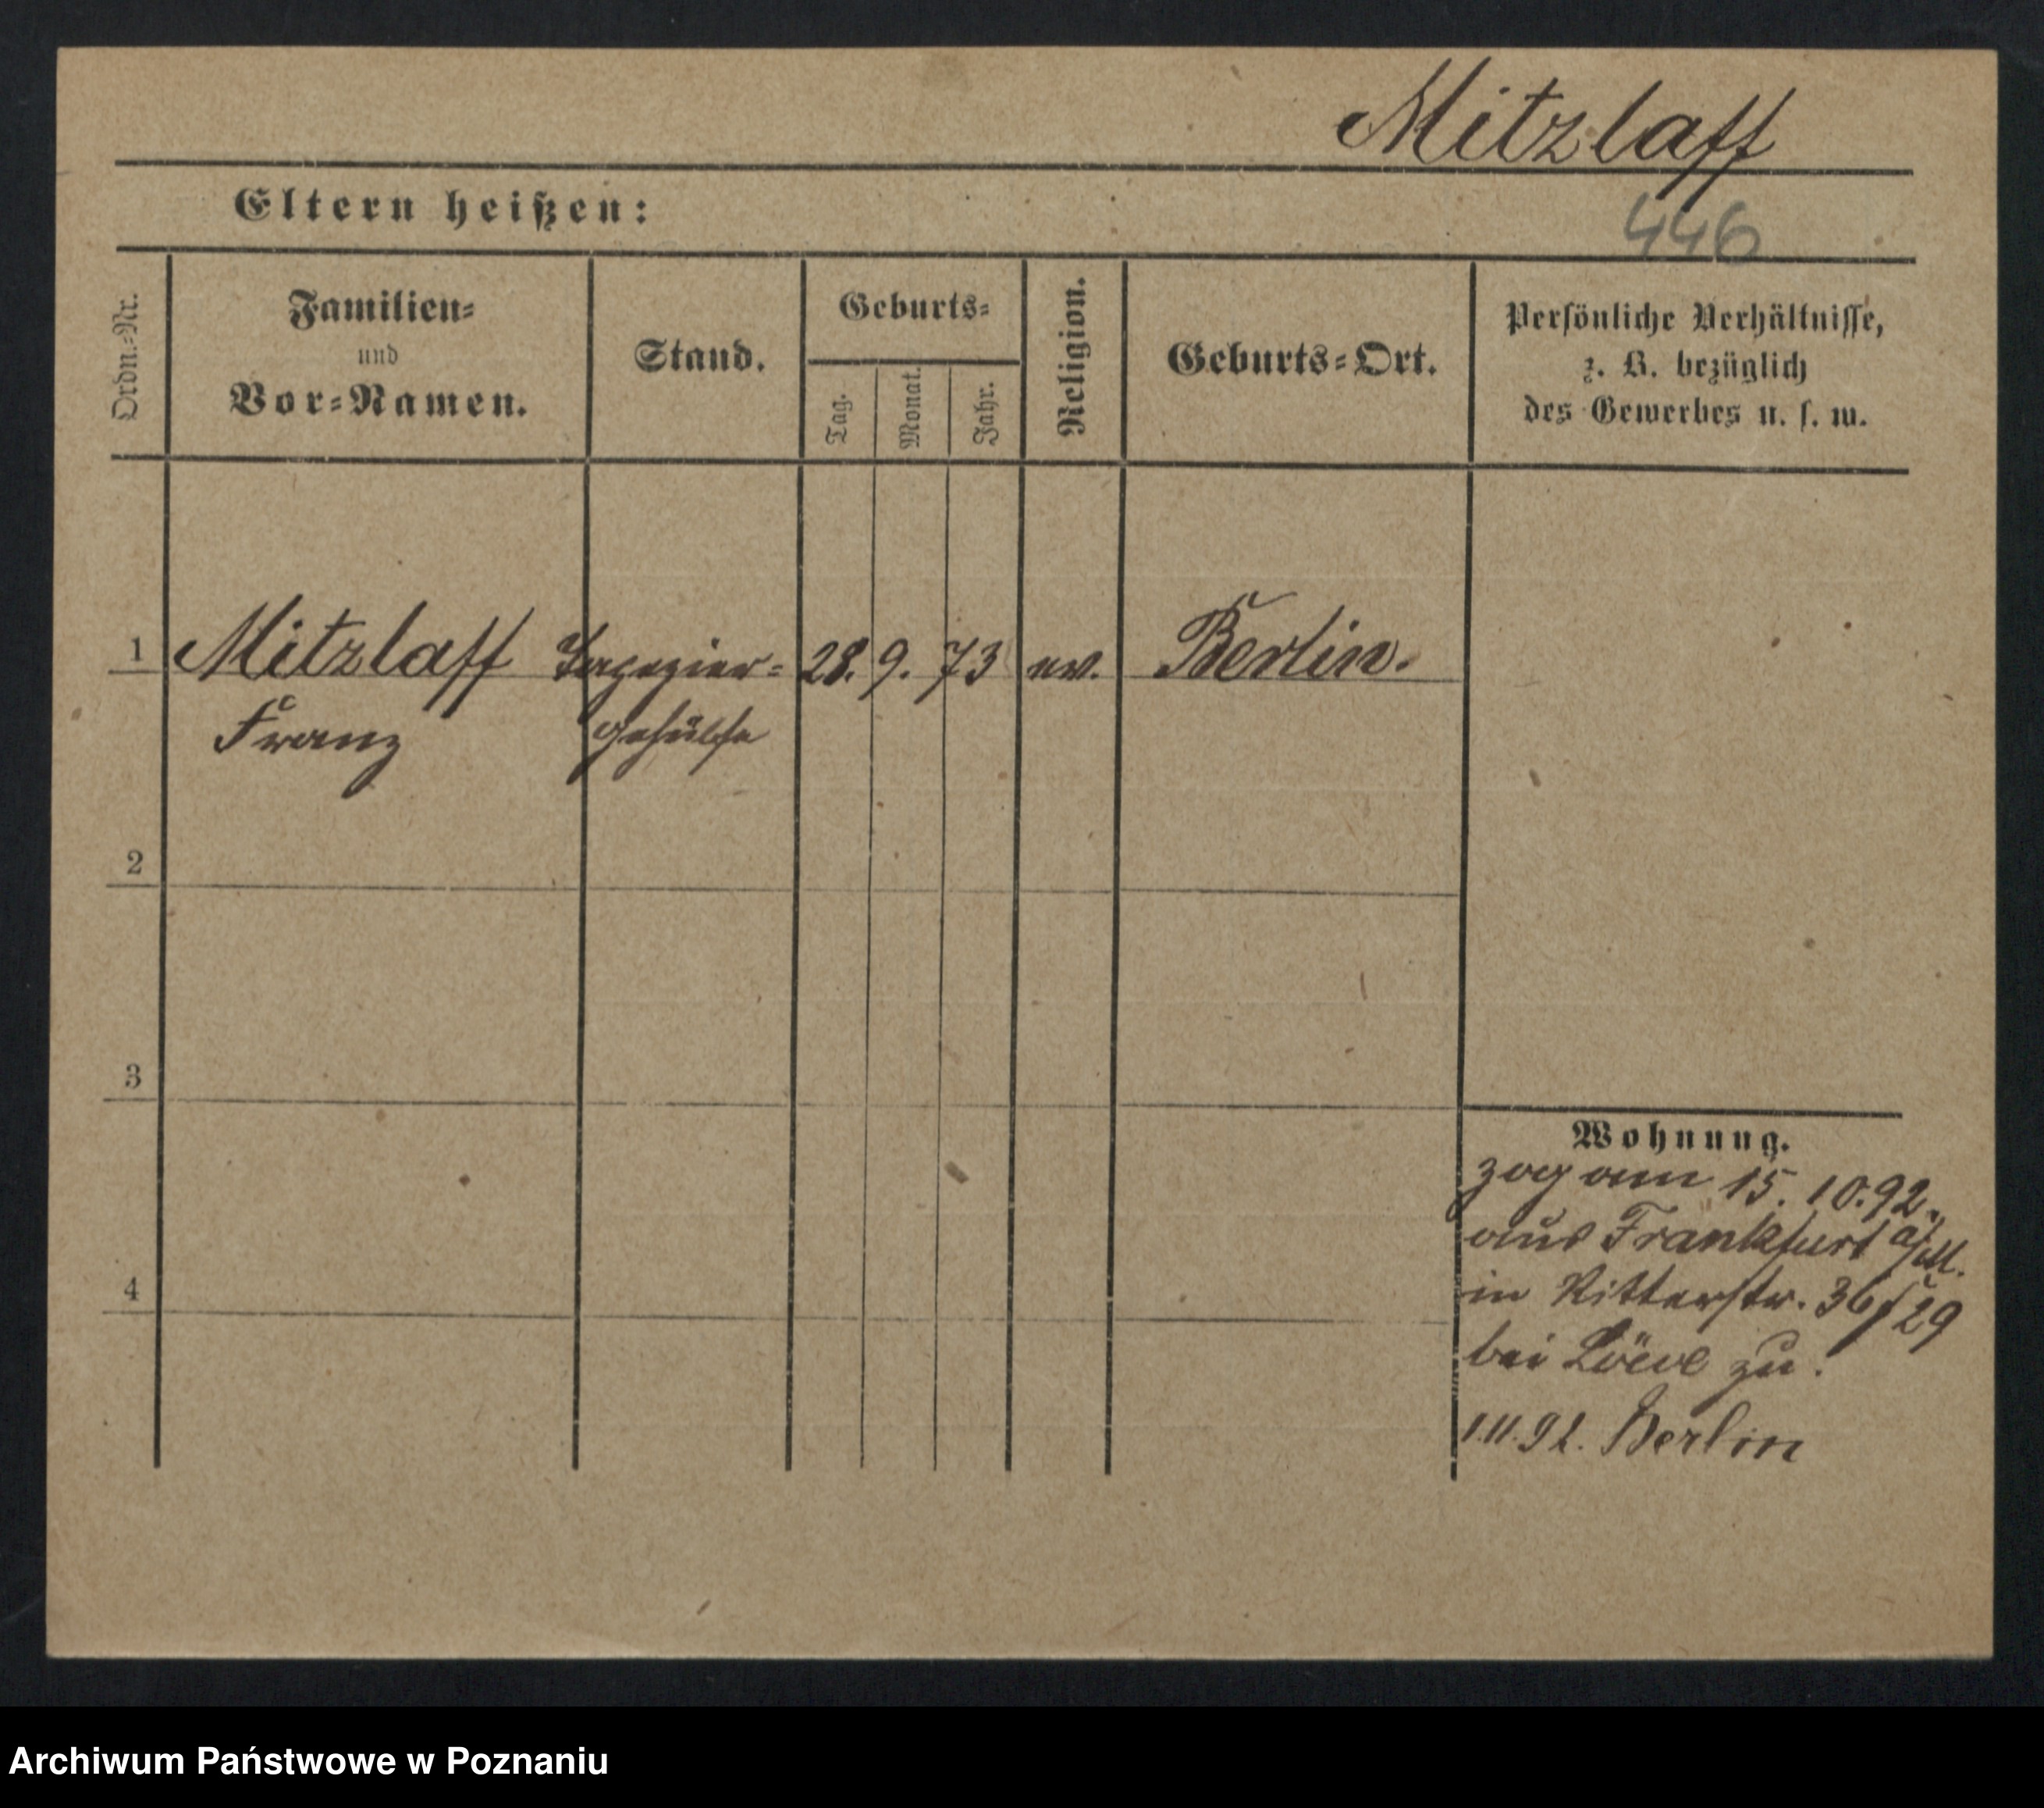 Mitzlaff
Eltern heißen:
446
Ordn.-Nr.
Familien-
und
Vor-Namen.
Stand.
Geburts-
Tag.
Monat.
Jahr.
Religion.
Geburts-Ort.
Persönliche Verhältnisse,
z. B. bezüglich
des Gewerbes u. s. w.
1 Mitzlaff Tapezier- 28. 9. 73 ev. Berlin.
Franz gehülfe
2
3
4
Wohnung.
zog am 15. 10. 92.
aus Frankfurt a/M.
in Ritterstr. 36/29
bei Löewe zu.
1.11.92. Berlin
Archiwum Państwowe w Poznaniu